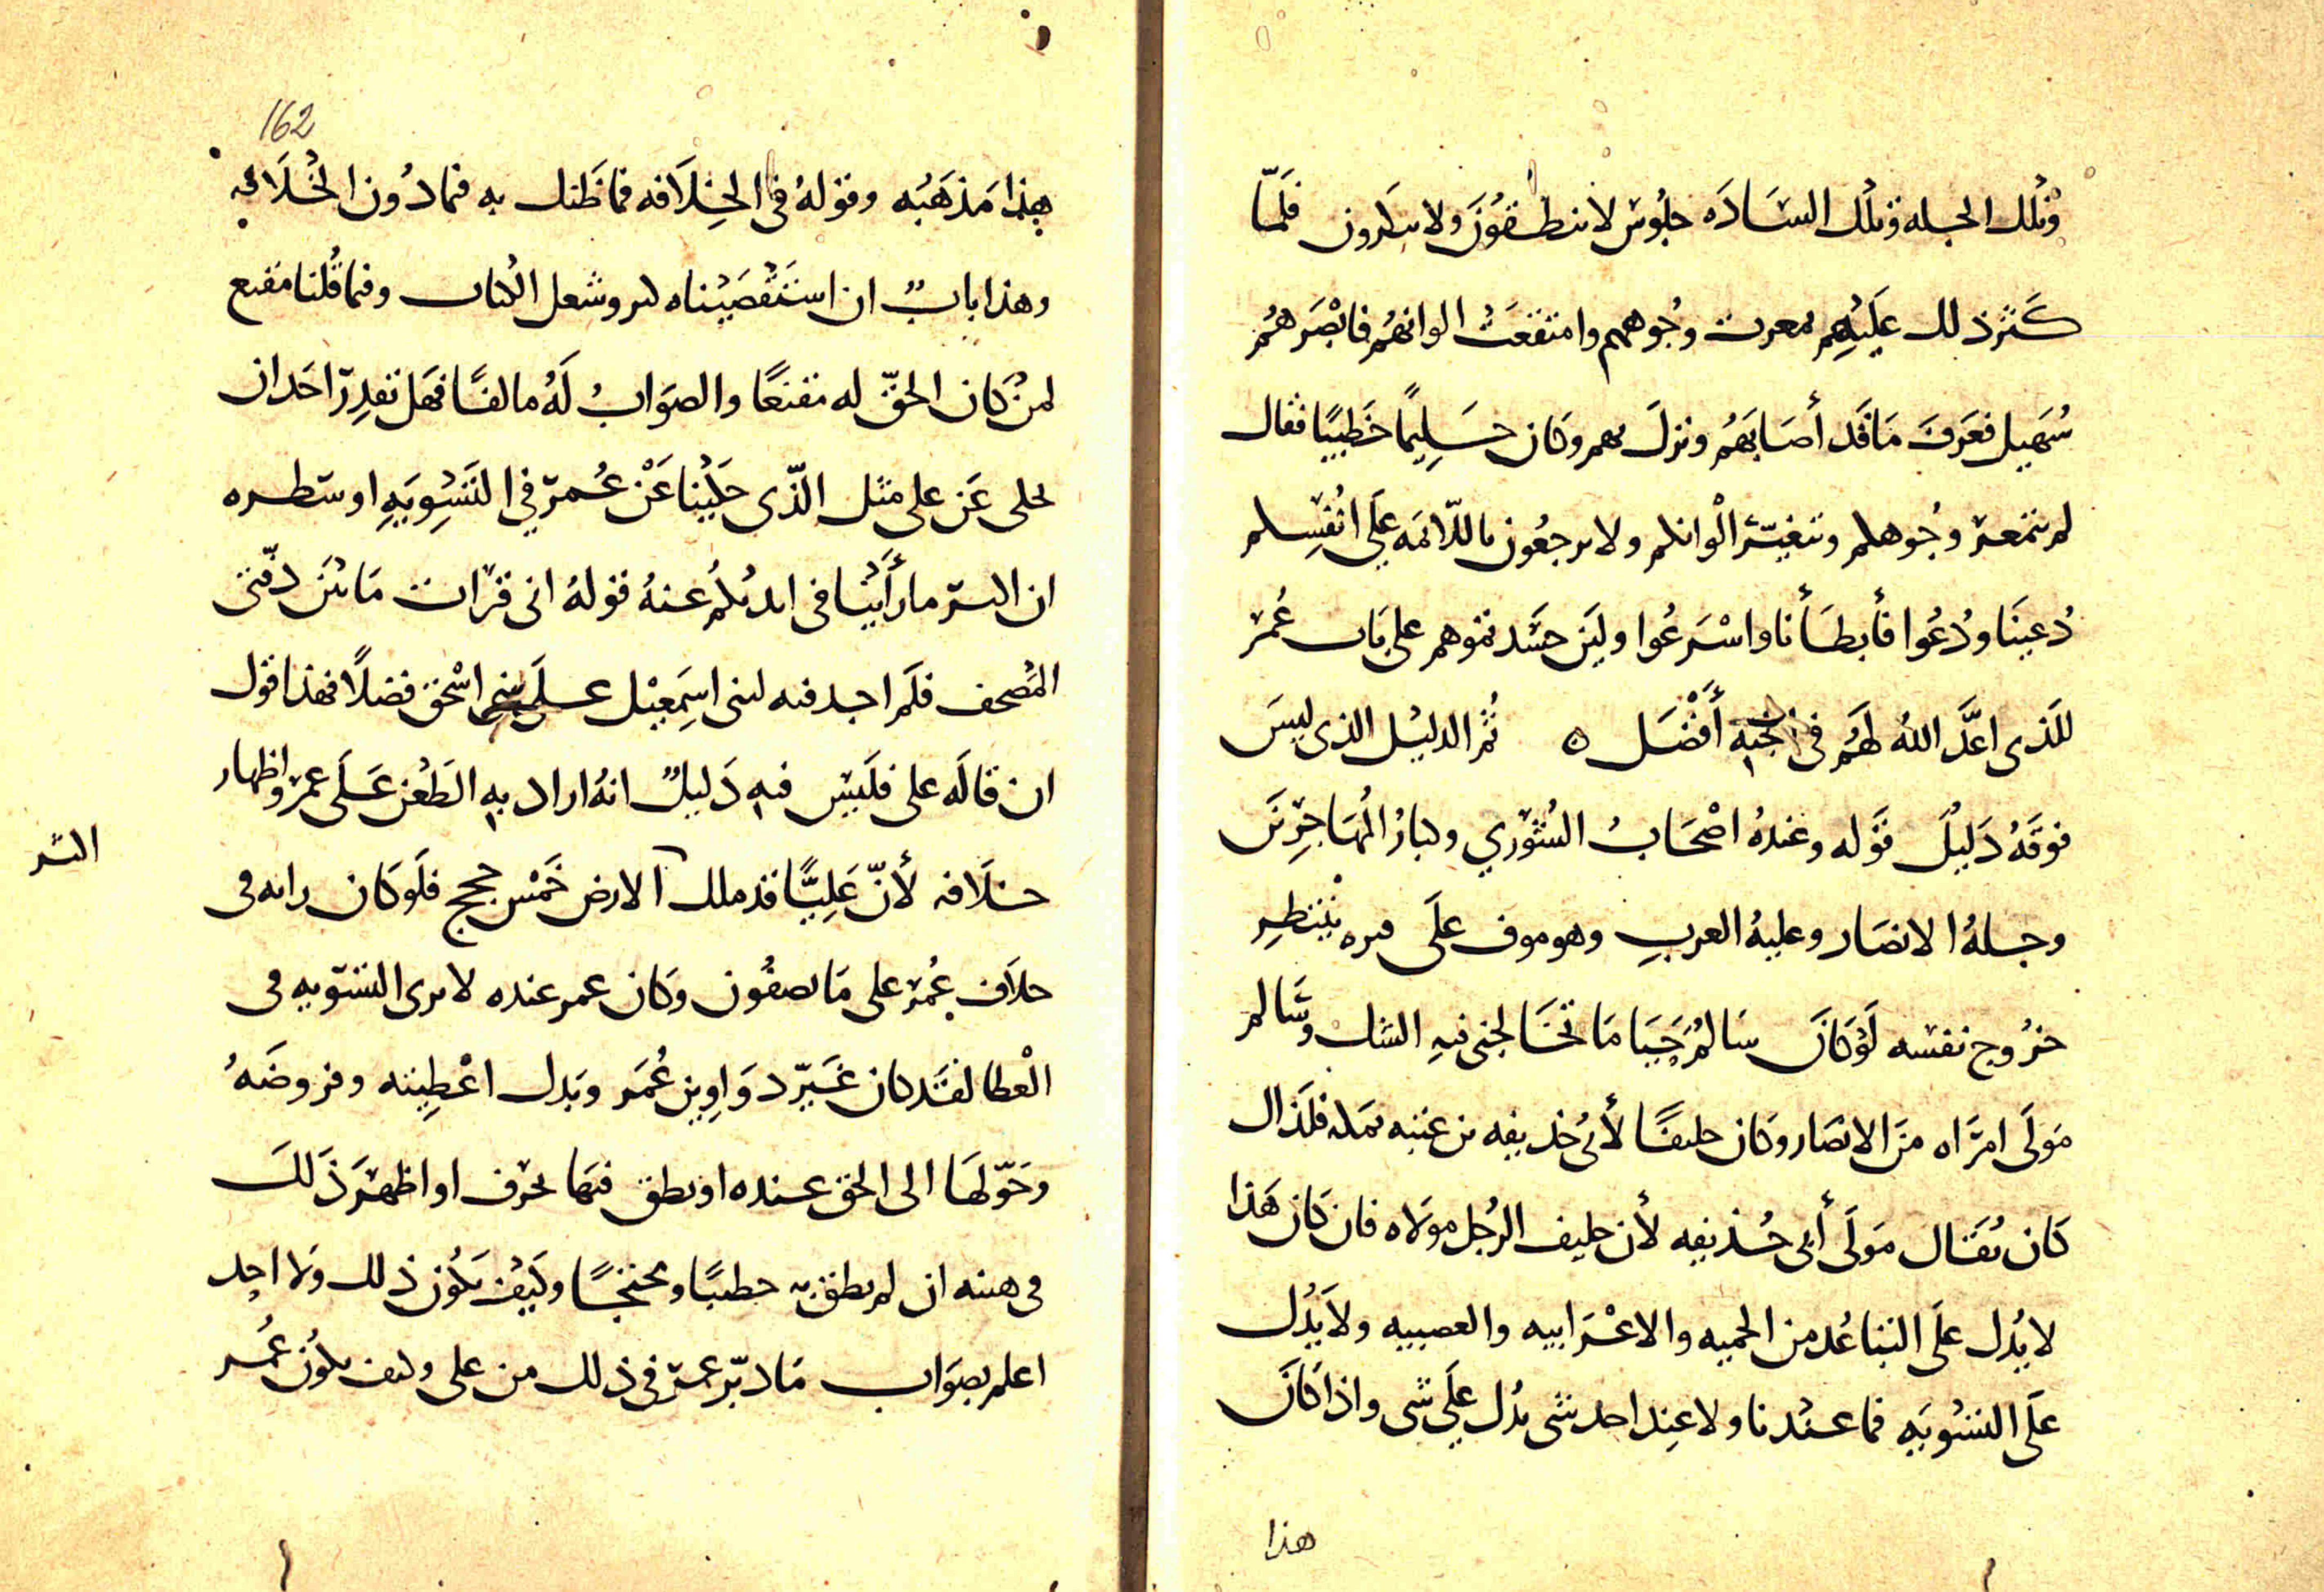 وتلك الجله وتلك الساده جلوس لا ينطقون ولا ينكرون فلمّا
كثر ذلك عليهم تمعرت وجوههم وامتقعت الوانهم فابصرهم
سهيل فعرف ما قد أصابهم ونزل بهم وكان حليمًا خطيبًا فقال
لم تتمعر وجوهكم وتتغيّر ألوانكم ولا ترجعون باللائمه على انفسكم
دُعينا ودُعُوا فأبطأنا واسرعُوا ولين حسدتموهم على باب عُمر
للذى اعدّ الله لهم في الجنه أفضل ۞ ثم الدليل الذى ليس
فوقه دليل قوله وعنده اصحاب الشورى وكبار المهاجرين
وجله الانصار وعليه العرب وهو موف على قبره ينتظر
خروج نفسه لو كان سالم حيا ما تخالجنى فيه الشك وسالم
مولى امراه من الانصار وكان حليفًا لأبى حذيفه بن عتبه بمكه فلذاك
كان يقال مولى أبى حذيفه لأن حليف الرجل مولاه فان كان هذا
لا يدل على التباعد من الحميه والاعرابيه والعصبيه ولا يدل
على التسويه فما عندنا ولا عند احد شى يدل على شى واذا كان
هذا
162
هذا مذهبه وقوله في الخلافه فما ظنك به فما دون الخلافه
وهذا باب ان استقصيناه كثر وشغل الكتاب وفيما قلنا مقنع
لمن كان الحق له مقنعًا والصواب له مالفًا فهل تقدر احد ان
يحكى عن على مثل الذّى حكينا عن عمر في التسويه او سطره
ان اكثر ما رأينا فى ايديكم عنه قوله انى قرات ما بين دفتى
المصحف فلم اجد فيه لبنى اسمعيل على بنى اسحق فضلًا فهذا قول
ان قاله على فليس فيه دليل انه اراد به الطعن على عمر واظهار
خلافه لأنّ عليًّا قد ملك الارض خمس حجج فلو كان رايه فى
اكثر
خلاف عمر على ما تصفون وكان عمر عنده لا يرى التسويه فى
العطا لقد كان غيّر دواوين عمر وبدل اعطيته وفروضه
وحوّلها الى الحق عنده او نطق فيها بحرف او اظهر ذلك
فى هيئه ان لم ينطق به خطيبًا ومحتجًا وكيف يكون ذلك ولا احد
اعلم بصواب ما دبّر عمر فى ذلك من على وكيف يكون عمر